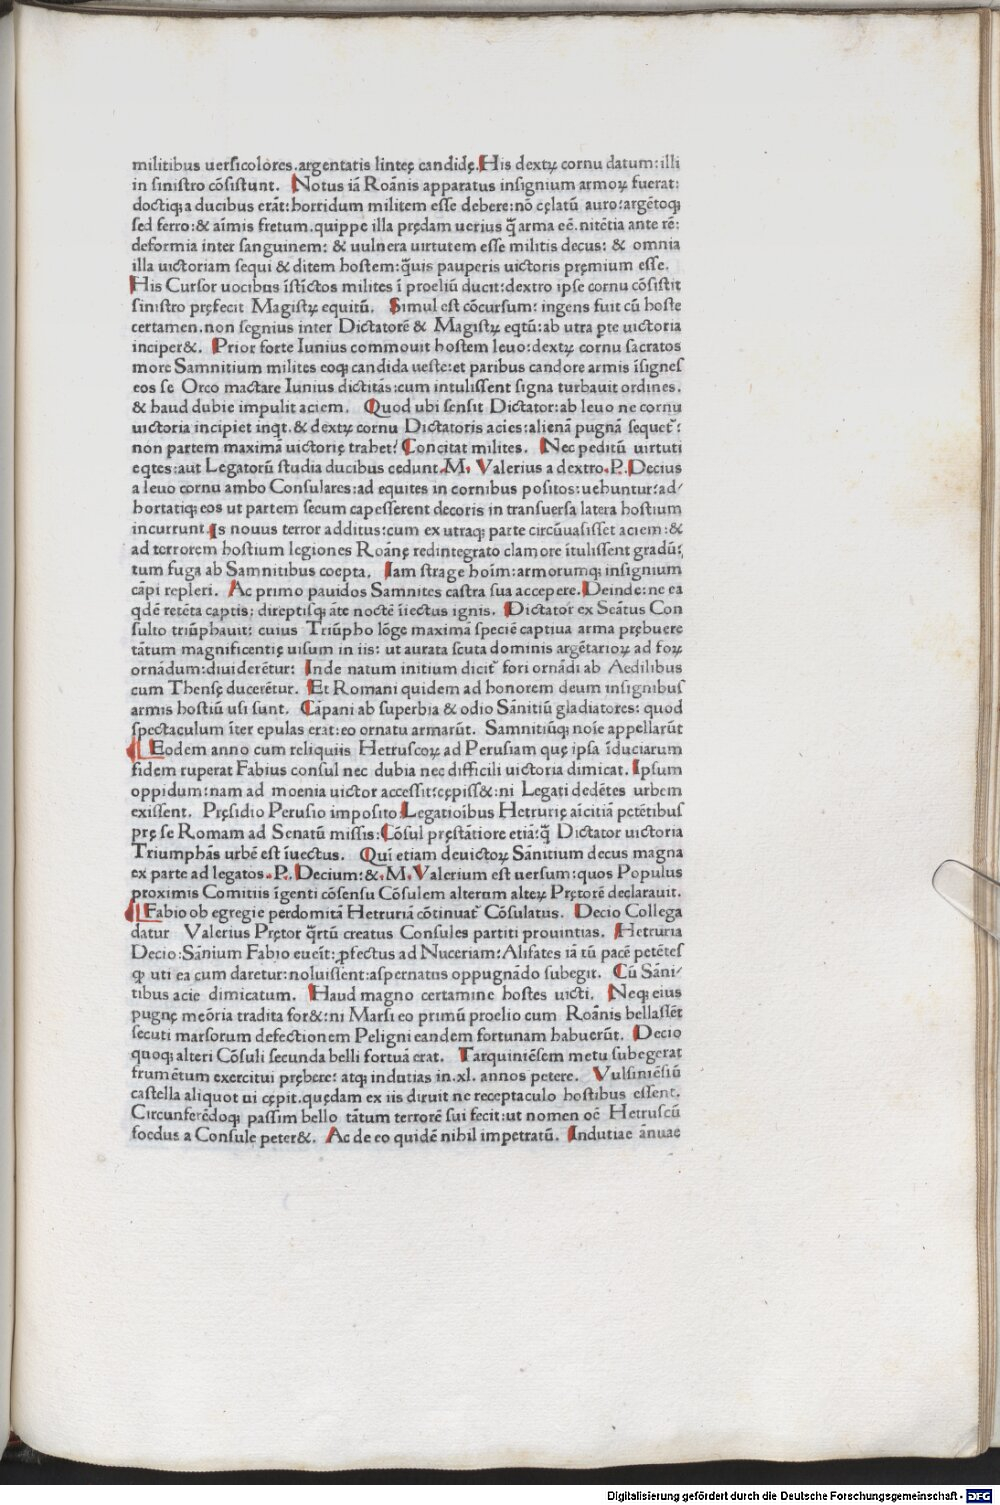 militibus uersicolores.argentatis linteę candidę.His dextꝝ cornu datum:illi
in sinistro cōsistunt. Notus iā Roānis apparatus insignium armoꝝ fuerat:
doctiqꝫ a ducibus erāt:horridum militem esse debere:nō cęlatū auro:argētoqꝫ
sed ferro:& aīmis fretum.quippe illa prędam uerius q̄̄ arma eē.nitētia ante rē:
deformia inter sanguinem: & uulnera uirtutem esse militis decus: & omnia
illa uictoriam sequi & ditem hostem:q̄uis pauperis uictoris pręmium esse.
His Cursor uocibus īstīctos milites ī proeliū ducit:dextro ipse cornu cōsistit
sinistro pręfecit Magistꝝ equitū. Simul est cōcursum: ingens fuit cū hoste
certamen.non segnius inter Dictatorē & Magistꝝ eqtū:ab utra ꝑte uictoria
inciper&. Prior forte Iunius commouit hostem leuo:dextꝝ cornu sacratos
more Samnitium milites eoqꝫ candida ueste:et paribus candore armis īsignes
eos se Orco mactare Iunius dictitās:cum intulissent signa turbauit ordines.
& haud dubie impulit aciem. Quod ubi sensit Dictator:ab leuo ne cornu
uictoria incipiet inqt.& dextꝝ cornu Dictatoris acies:alienā pugnā sequet̄:
non partem maximā uictorię trahet? Concitat milites. Nec peditū uirtuti
eqtes:aut Legatorū studia ducibus cedunt.M. Valerius a dextro.P.Decius
a leuo cornu ambo Consulares:ad equites in cornibus positos:uehuntur:ad/
hortatiqꝫ eos ut partem secum capesserent decoris in transuersa latera hostium
incurrunt.Is nouus terror additus:cum ex utraqꝫ parte circūuasisset aciem:&
ad terrorem hostium legiones Roānę redintegrato clamore ītulissent gradū:
tum fuga ab Samnitibus coepta. Iam strage hoīm:armorumqꝫ insignium
cāpi repleri. Ac primo pauidos Samnites castra sua accepere.Deinde:ne ea
qdē retēta captis: direptisqꝫ āte noctē īiectus ignis. Dictator ex Seātus Con
sulto triūphauit: cuius Triūpho lōge maximā speciē captiua arma prębuere
tātum magnificentię uisum in iis: ut aurata scuta dominis argētarioꝝ ad foꝝ
ornādum:diuiderētur: Inde natum initium dicit̄ fori ornādi ab Aedilibus
cum Thensę ducerētur. Et Romani quidem ad honorem deum insignibus
armis hostiū usi sunt. Cāpani ab superbia & odio Sānitiū gladiatores: quod
spectaculum īter epulas erat:eo ornatu armarūt. Samnitiūqꝫ noīe appellarūt
Eodem anno cum reliquiis Hetruscoꝝ ad Perusiam quę ipsa īduciarum
fidem ruperat Fabius consul nec dubia nec difficili uictoria dimicat. Ipsum
oppidum:nam ad moenia uictor accessit:cępiss&:ni Legati dedētes urbem
exissent. Pręsidio Perusio imposito.Legatioībus Hetrurię aīcitiā petētibus
prę se Romam ad Senatū missis:Cōsul pręstātiore etiā:q̄̄ Dictator uictoria
Triumphās urbē est īuectus. Quī etiam deuictoꝝ Sānitium decus magna
ex parte ad legatos.P. Decium:&.M.Valerium est uersum:quos Populus
proximis Comitiis īgenti cōsensu Cōsulem alterum alteꝝ Prętorē declarauit.
Fabio ob egregie perdomitā Hetruriā cōtinuat̄ Cōsulatus. Decio Collega
datur Valerius Prętor q̄rtū creatus Consules partiti prouintias. Hetruria
Decio:Sānium Fabio eueīt: ꝓfectus ad Nuceriam:Alifates iā tū pacē petētes
ꝙ uti ea cum daretur:noluissent:aspernatus oppugnādo subegit. Cū Sāni/
tibus acie dimicatum. Haud magno certamine hostes uicti. Neqꝫ eius
pugnę meōria tradita for&:ni Marsi eo primū proelio cum Roānis bellassēt
secuti marsorum defectionem Peligni eandem fortunam habuerūt. Decio
quoqꝫ alteri Cōsuli secunda belli fortuā erat. Tarquiniēsem metu subegerat
frumētum exercitui prębere: atqꝫ indutias in.xl. annos petere. Vulsiniēsiū
castella aliquot ui cępit.quędam ex iis diruit ne receptaculo hostibus essent.
Circunferēdoqꝫ passim bello tātum terrorē sui fecit:ut nomen oē Hetruscū
foedus a Consule peter&. Ac de eo quidē nihil impetratū. Indutiae ānuae
Digitalisierung gefördert durch die Deutsche Forschungsgemeinschaft - DFG